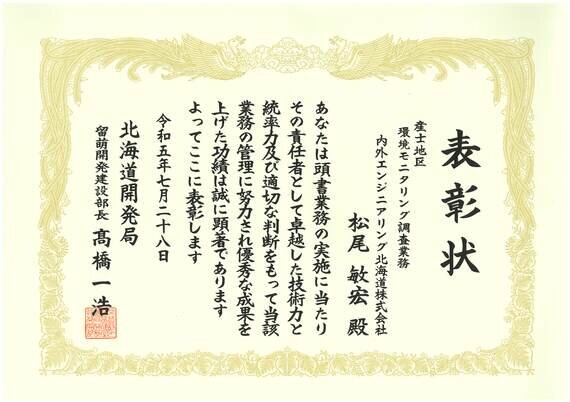 表彰状
産士地区
環境モニタリング調査業務
内外エンジニアリング北海道株式会社
松尾 敏宏 殿
あなたは頭書業務の実施に当たり
その責任者として卓越した技術力と
統率力及び適切な判断をもって当該
業務の管理に努力され優秀な成果を
上げた功績は誠に顕著であります
よってここに表彰します
令和五年七月二十八日
北海道開発局
留萌開発建設部長 髙橋一浩